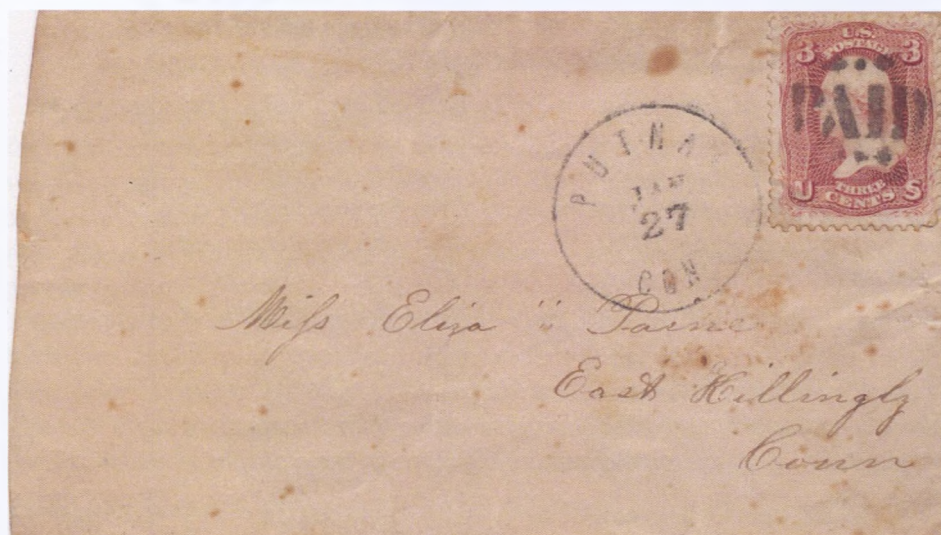 3 U.S. 3
POSTAGE
PAID
U THREE S
CENTS
PUTNA
JAN
27
CON
Miss Eliza "
East Killingly
Conn